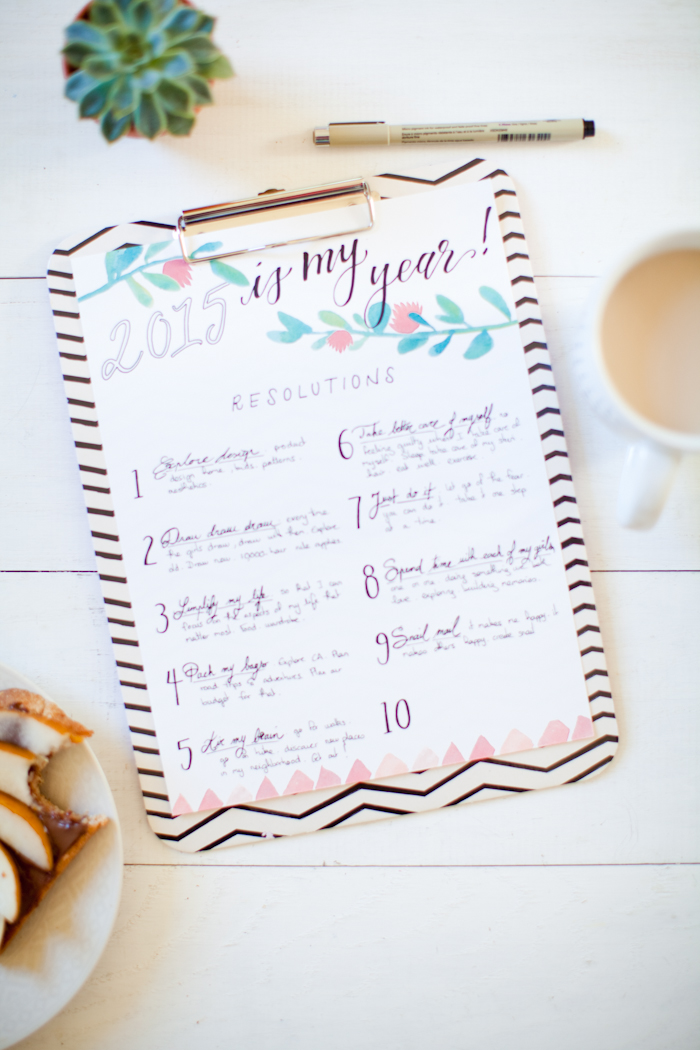 2015 is my year!
RESOLUTIONS
1 Explore design product
design home, kids, patterns.
aesthetics.
2 Draw draw draw every time
the girls draw, draw with them Explore
old. Draw now 10000 hour rule applies
3 Simplify my life so that I can
focus on the aspects of my life that
matter most food wardrobe.
4 Pack my bags Explore CA Plan
road trips & adventures. Plan our
budget for that.
5 Air my brain go for walks.
go bike discover new places
in my neighborhood. Go out!
6 Take better care of myself
feeling guilty take care of
myself sleep take care of my skin
hair eat well. exercise
7 Just do it let go of the fear
you can do it take it one step
at a time
8 Spend time with each of my girls
one on one doing something we both
love exploring, building memories.
9 Snail mail it makes me happy it
makes others happy create snail
10